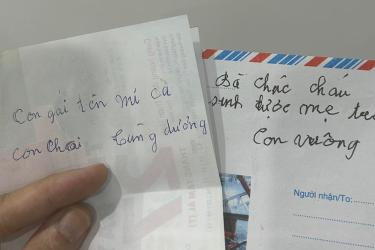 Con gái tên mí cà
Con Chai Tùng dương
Bà chúc cháu
sinh được mẹ
Con vuông
Người nhận/To: